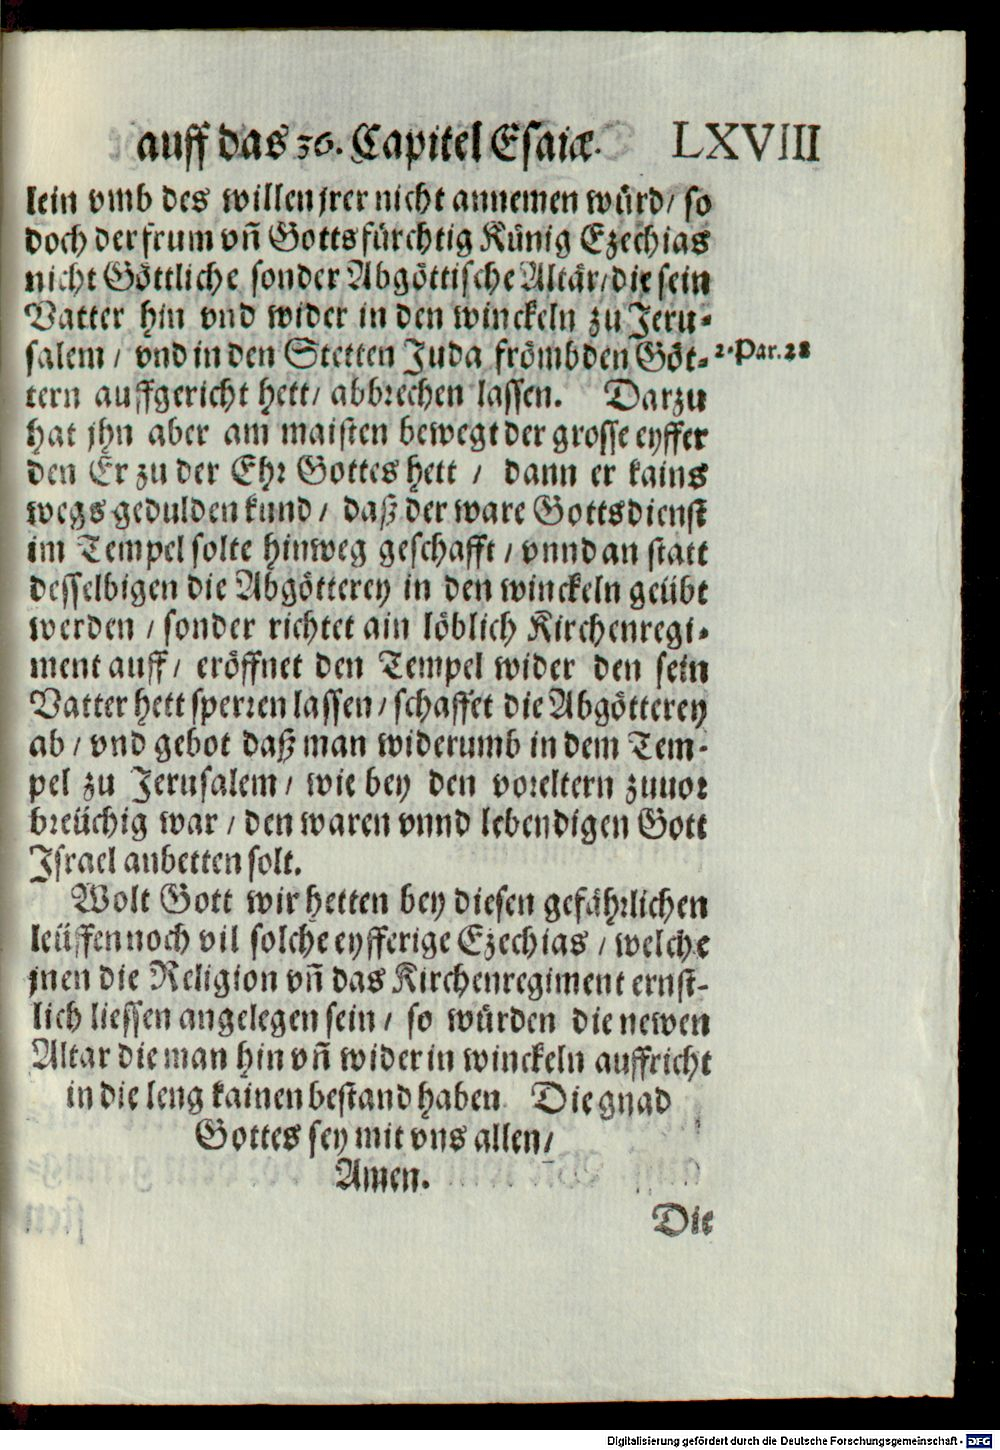 auff das 36. Capitel Esaiæ. LXVIII
lein vmb des willen jrer nicht annemen würd / so
doch der frum vñ Gottsfürchtig Künig Ezechias
nicht Göttliche sonder Abgöttische Altär / die sein
Vatter hin vnd wider in den winckeln zu Jeru-
salem / vnd in den Stetten Juda frömbden Göt-
2. Par. 28
tern auffgericht hett / abbrechen lassen. Darzu
hat jhn aber am maisten bewegt der grosse eyffer
den Er zu der Ehr Gottes hett / dann er kains
wegs gedulden kund / daß der ware Gottsdienst
im Tempel solte hinweg geschafft / vnnd an statt
desselbigen die Abgötterey in den winckeln geübt
werden / sonder richtet ain löblich Kirchenregi-
ment auff / eröffnet den Tempel wider den sein
Vatter hett sperren lassen / schaffet die Abgötterey
ab / vnd gebot daß man widerumb in dem Tem-
pel zu Jerusalem / wie bey den voreltern zuuor
breüchig war / den waren vnnd lebendigen Gott
Israel anbetten solt.
Wolt Gott wir hetten bey diesen gefährlichen
leüffen noch vil solche eyfferige Ezechias / welche
jnen die Religion vñ das Kirchenregiment ernst-
lich liessen angelegen sein / so würden die newen
Altar die man hin vñ wider in winckeln auffricht
in die leng kainen bestand haben Die gnad
Gottes sey mit vns allen /
Amen.
Die
Digitalisierung gefördert durch die Deutsche Forschungsgemeinschaft - DFG